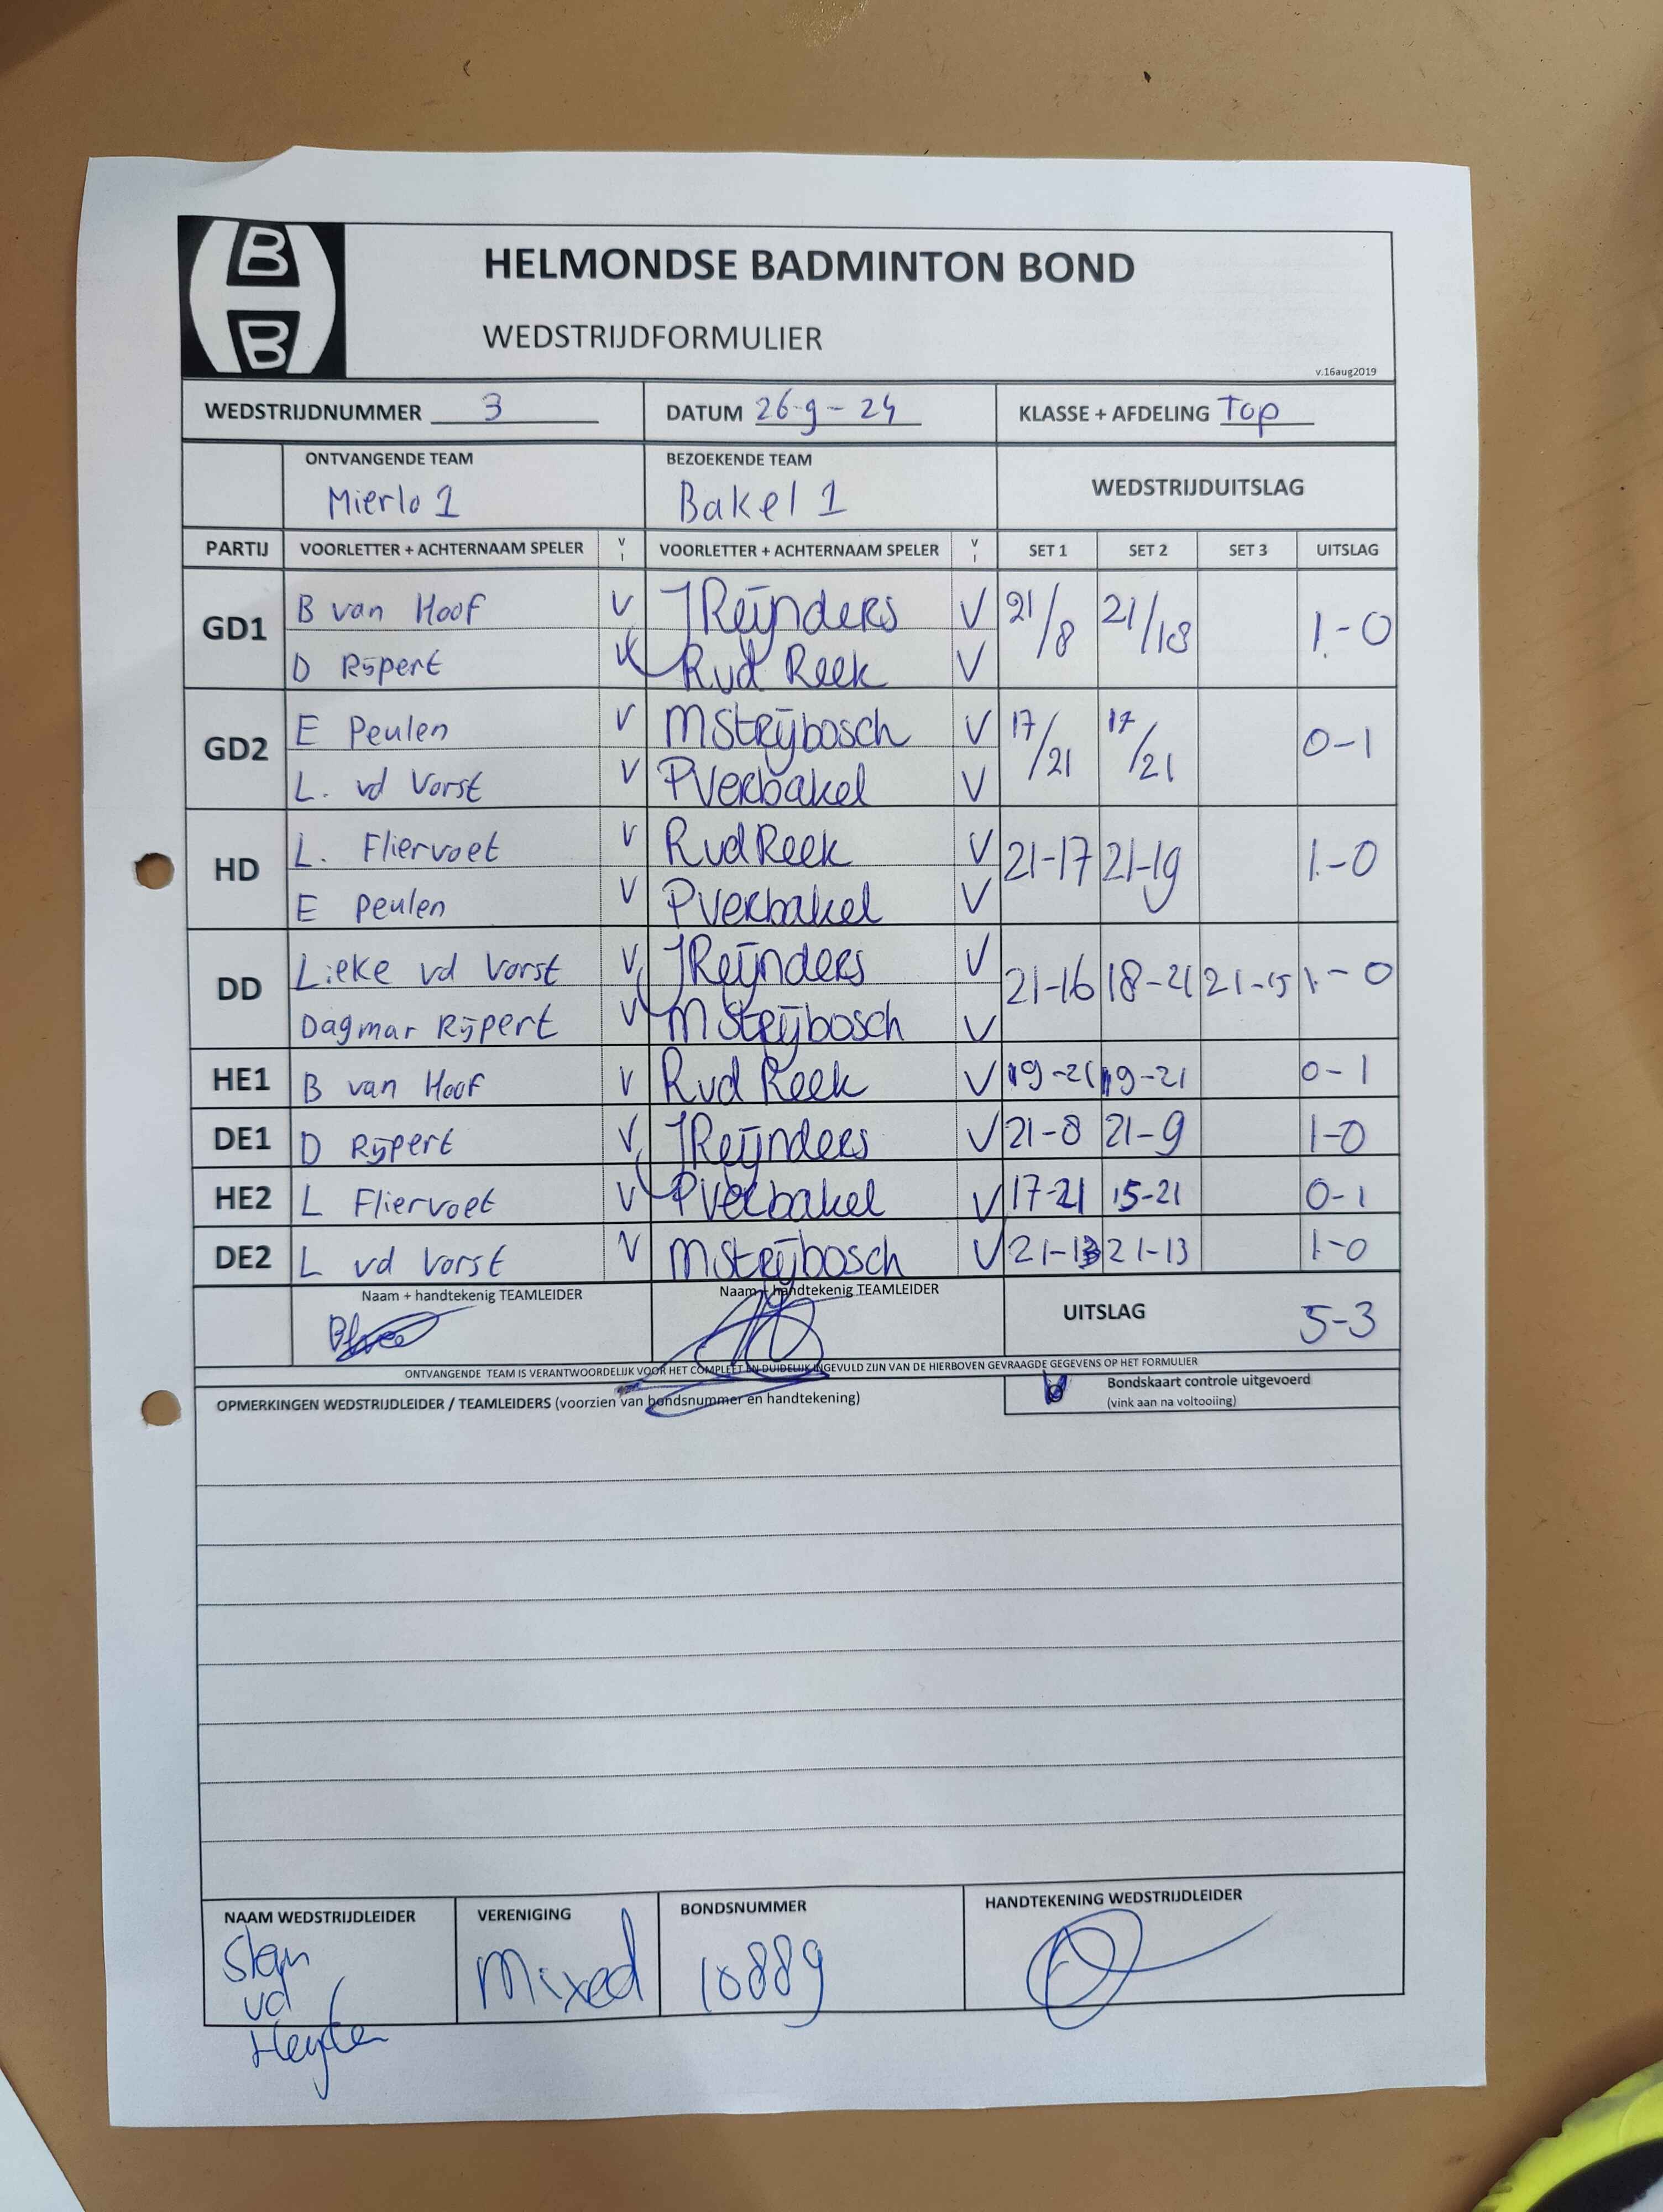 B
B
HELMONDSE BADMINTON BOND
WEDSTRIJDFORMULIER
v.16aug2019
WEDSTRIJDNUMMER 3 DATUM 26-9-24 KLASSE + AFDELING Top
ONTVANGENDE TEAM BEZOEKENDE TEAM WEDSTRIJDUITSLAG
Mierlo 1 Bakel 1
PARTIJ VOORLETTER + ACHTERNAAM SPELER V I VOORLETTER + ACHTERNAAM SPELER V I SET 1 SET 2 SET 3 UITSLAG
GD1 B van Hoof V J Reijnders V 21/8 21/18 1-0
D Rijpert V R vd Reek V
GD2 E Peulen V M Strijbosch V 17/21 17/21 0-1
L. vd Vorst V P Verbakel V
HD L. Fliervoet V R vd Reek V 21-17 21-19 1-0
E Peulen V P Verbakel V
DD Lieke vd Vorst V J Reijnders V 21-16 18-21 21-15 1-0
Dagmar Rijpert V M Strijbosch V
HE1 B van Hoof V R vd Reek V 19-21 19-21 0-1
DE1 D Rijpert V J Reijnders V 21-8 21-9 1-0
HE2 L Fliervoet V P Verbakel V 17-21 15-21 0-1
DE2 L vd Vorst V M Strijbosch V 21-13 21-13 1-0
Naam + handtekenig TEAMLEIDER Naam + handtekenig TEAMLEIDER UITSLAG 5-3
ONTVANGENDE TEAM IS VERANTWOORDELIJK VOOR HET COMPLEET EN DUIDELIJK INGEVULD ZIJN VAN DE HIERBOVEN GEVRAAGDE GEGEVENS OP HET FORMULIER
OPMERKINGEN WEDSTRIJDLEIDER / TEAMLEIDERS (voorzien van bondsnummer en handtekening) Bondskaart controle uitgevoerd
(vink aan na voltooiing)
NAAM WEDSTRIJDLEIDER VERENIGING BONDSNUMMER HANDTEKENING WEDSTRIJDLEIDER
Stan Mixed 10889
vd